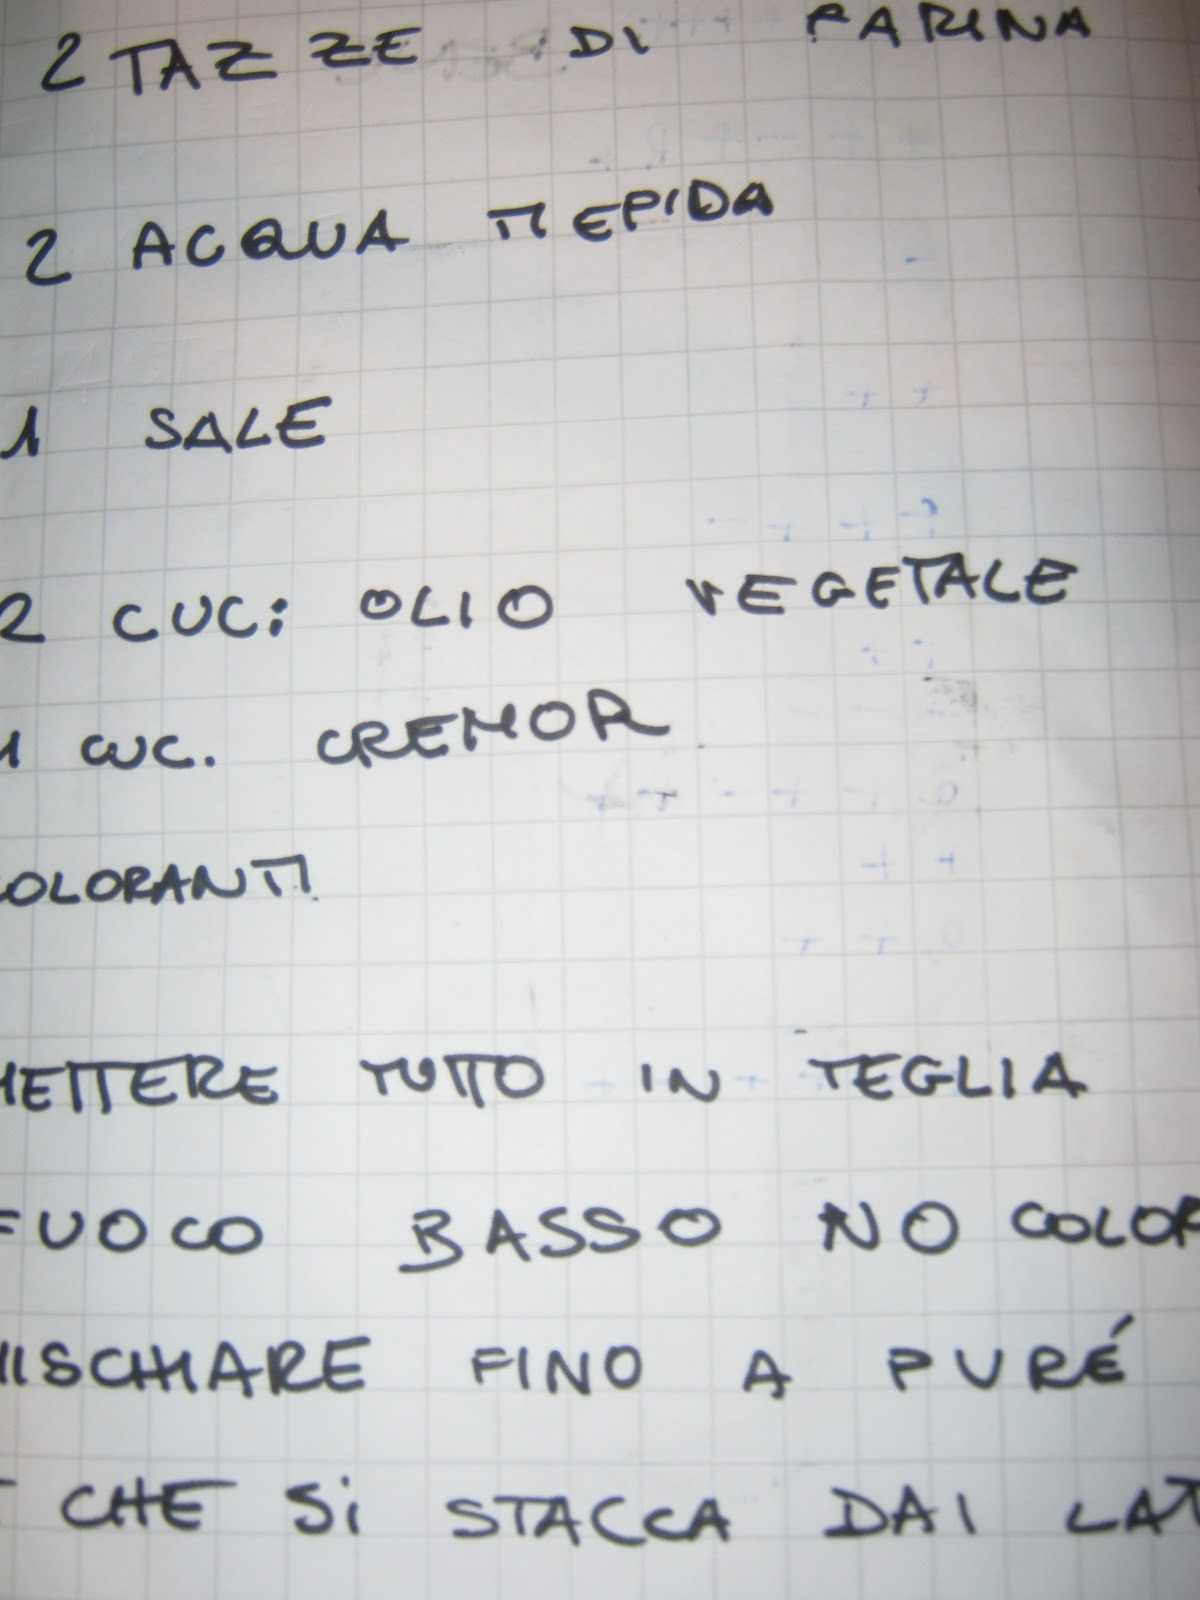 2 TAZZE DI FARINA
2 ACQUA TIEPIDA
1 SALE
2 CUC: OLIO VEGETALE
1 CUC. CREMOR
COLORANTI.
METTERE TUTTO IN TEGLIA
FUOCO BASSO NO COLOR
MISCHIARE FINO A PURÉ
CHE SI STACCA DAI LAT